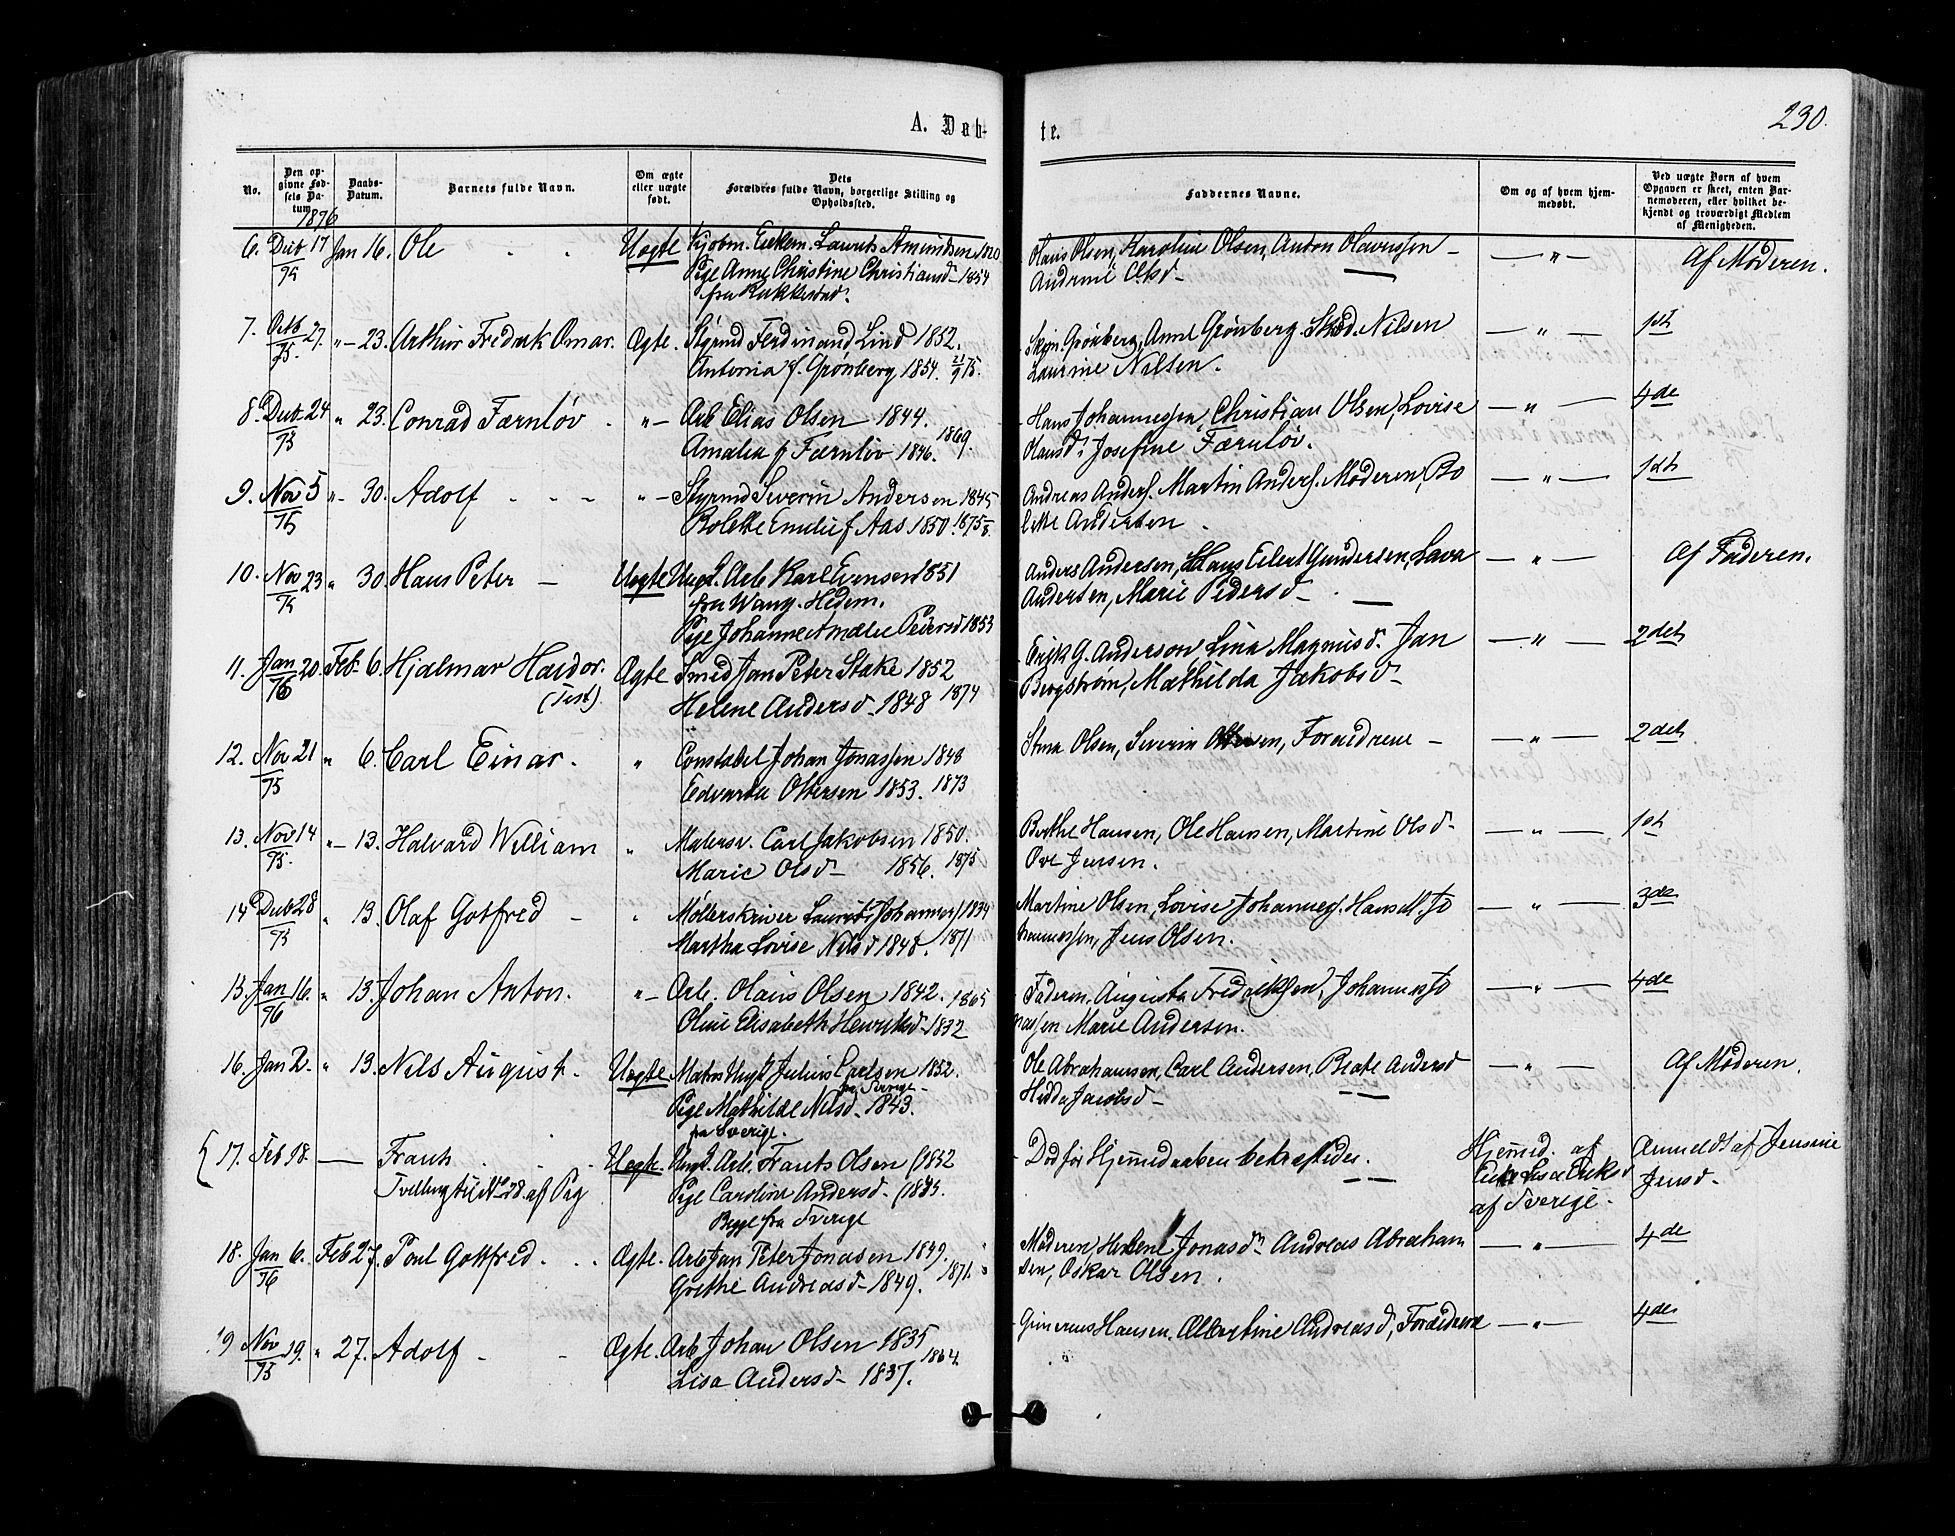 230.
A. Døb-
te.
No.
Den op-
givne Fød-
sels Da-
tum.
Daabs-
Datum.
Barnets fulde Navn.
Om ægte
eller uægte
født.
Dets
Forældres fulde Navn, borgerlige Stilling og
Opholdssted.
Faddernes Navne.
Om og af hvem hjem-
medøbt.
Ved uægte Børn af hvem
Opgaven er skeet, enten Bar-
nemoderen, eller hvilket be-
kjendt og troværdigt Medlem
af Menigheden.
1876
6. Decb 17 Jan 16. Ole Uægte Kjøbm. Enkem. Laurits Amundsen 1820 Olaus Olsen, Karoline Olsen, Anton Olavessen — " — Af Moderen.
75 Pige Anne Christine Christiansd 1854 Andrine Olsd
fra Rakkestad.
7. Octb 27. " 23. Arthur Fredrik Omar. Ægte. Styrmd Ferdinand Lind 1852. Grønberg, Anne Grønberg. Nilsen — " — 1st
75. Antonia f. Grønberg 1854. 21/9 75. Laurine Nilsen.
8. Decb. 24 " 23. Conrad Færnløv " Arb Elias Olsen 1844. Hans Johannessen, Christian Olsen, Lovise — " — 4de
75 Amalia f Færnløv 1846. 1869. Hansd. Josefine Færnløv.
9. Nov 5 " 30. Adolf " Styrmd Severin Andersen 1845 Andreas Anders. Martin Anders. Moderen, Bo — " — 1st
75 Bolette Emilie f Aas 1850. 1875 lette Andersen
10. Nov 23 " 30. Hans Peter Uægte Ungk. Arb Karl Evensen 1851 Anders Andersen, Hans Eilert Gundersen, Lava — " — Af Faderen.
75 fra Wang. Hedem. Andersen, Marie Pedersd
Pige Johanne Amalie Pedersd 1853
11. Jan 20. Feb. 6. Hjalmar Haldor. Ægte Smed Jan Peter Stake 1852 Erik G. Anderson Lina Magnusd. Jan — " — 2det
76 Helene Andersd 1848 1874 Bergstrøm, Mathilda Jakobsd
12. Nov 21 " 6. Carl Einar. " Constabel Johan Jonassen 1848 Stina Olsen, Severin Olsen, Forældrene — " — 2det
75 Edvarda Ottersen 1853. 1873
13. Nov 14 " 13. Halvard William " Malersv. Carl Jakobsen 1850. Berthe Hansen, Ole Hansen, Martine Olsd — " — 1st
75. Marie Olsd 1856. 1875 Ove Jensen.
14 Decb 28 " 13. Olaf Gotfred " Møllerskriver Laurits Johannes. 1834 Martine Olsen, Lovise Johannes. Hans M. Jo — " — 3de
75 Martha Lovise Nilsd 1848. 1871 hannessen, Jens Olsen.
15. Jan 16. " 13. Johan Anton. " Arb. Olaus Olsen 1842. 1865 Faderen. Augusta Fredriksen, Johannes Jo — " — 4de
76 Oline Elisabeth Henriksd 1832 nassen Marie Andersen.
16. Jan 2. " 13. Nils August. Uægte Matros Ungk. Julius Carlsen 1852. Ole Abrahamsen, Carl Andersen, Beate Andersd — " — Af Moderen.
fra Sverige
Pige Mathilde Nilsd. 1843. Hedda Jacobsd
fra Sverige.
17. Feb 18. — Frants Uægte. Ungk. Arb. Frants Olsen (1852 Død før Hjemmedaaben bekræftedes. Hjemmd. af Anmeldt af Jensine
Tvilling til No 28. af Pig Pige Carolina Andersd. Eriksd Jensd
Begge fra Sverige af Sverige
18. Jan 6. Feb 27. Poul Gottfred. Ægte. Arb Jan Peter Jonasen 1849. Moderen, Helene Jonasd Andreas Abraham — " — 4de
76 Grethe Andreasd 1849. 1871. sen, Oskar Olsen.
19 Nov 19. " 27. Adolf Ægte. Arb Johan Olsen 1835 Hansen. Albertine Andreasd, Forældrene — " — 4de
75 Lisa Andersd 1837. 1864.